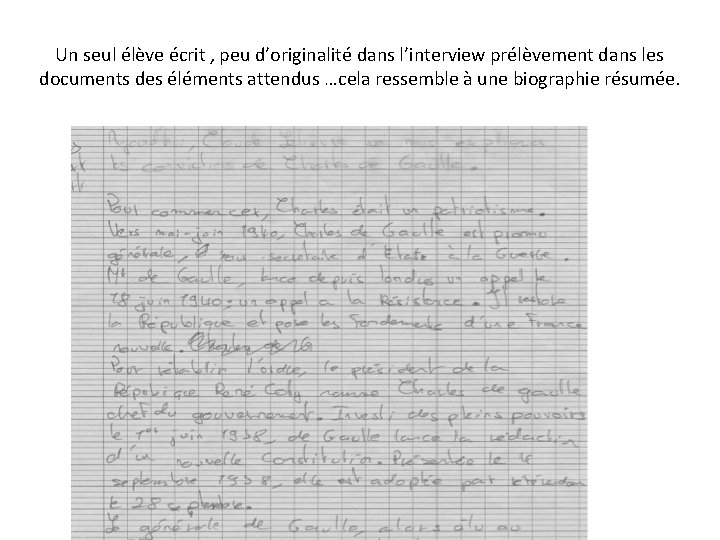 Un seul élève écrit , peu d’originalité dans l’interview prélèvement dans les
documents des éléments attendus …cela ressemble à une biographie résumée.
Claude va nous expliquer
les convictions de Charles de Gaulle.
Pour commencer, Charles était un patriotisme.
Vers mai-juin 1940, Charles de Gaulle est promu
générale, sous-secrétaire d'État à la Guerre.
Mr de Gaulle, lance depuis londres un appel le
18 juin 1940 : un appel a la Résistance. Il restore
la République et pose les fondements d'une France
nouvelle.
Pour rétablir l'ordre, le président de la
République René Coty, nomme Charles de gaulle
chef du gouvernement. Investi des pleins pouvoirs
le 1er juin 1958, de Gaulle lance la rédaction
d'un nouvelle Constitution. Présentée le 4
septembre 1958, elle est adoptée par référendom
le 28 septembre.
Le générale de Gaulle, alors élu au